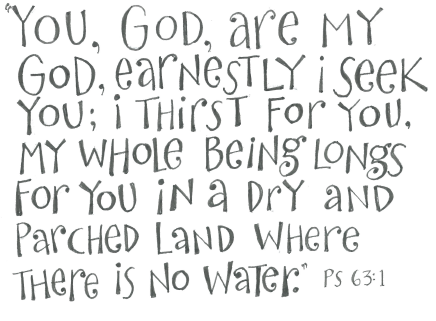 "YOU, GOD, are MY
GOD, earnestly i seek
YOU; i THirST For YOU,
MY WHOLe BeinG LONGS
For YOU iN a DrY AND
ParCHeD LaND WHere
THere iS NO WaTer." PS 63:1